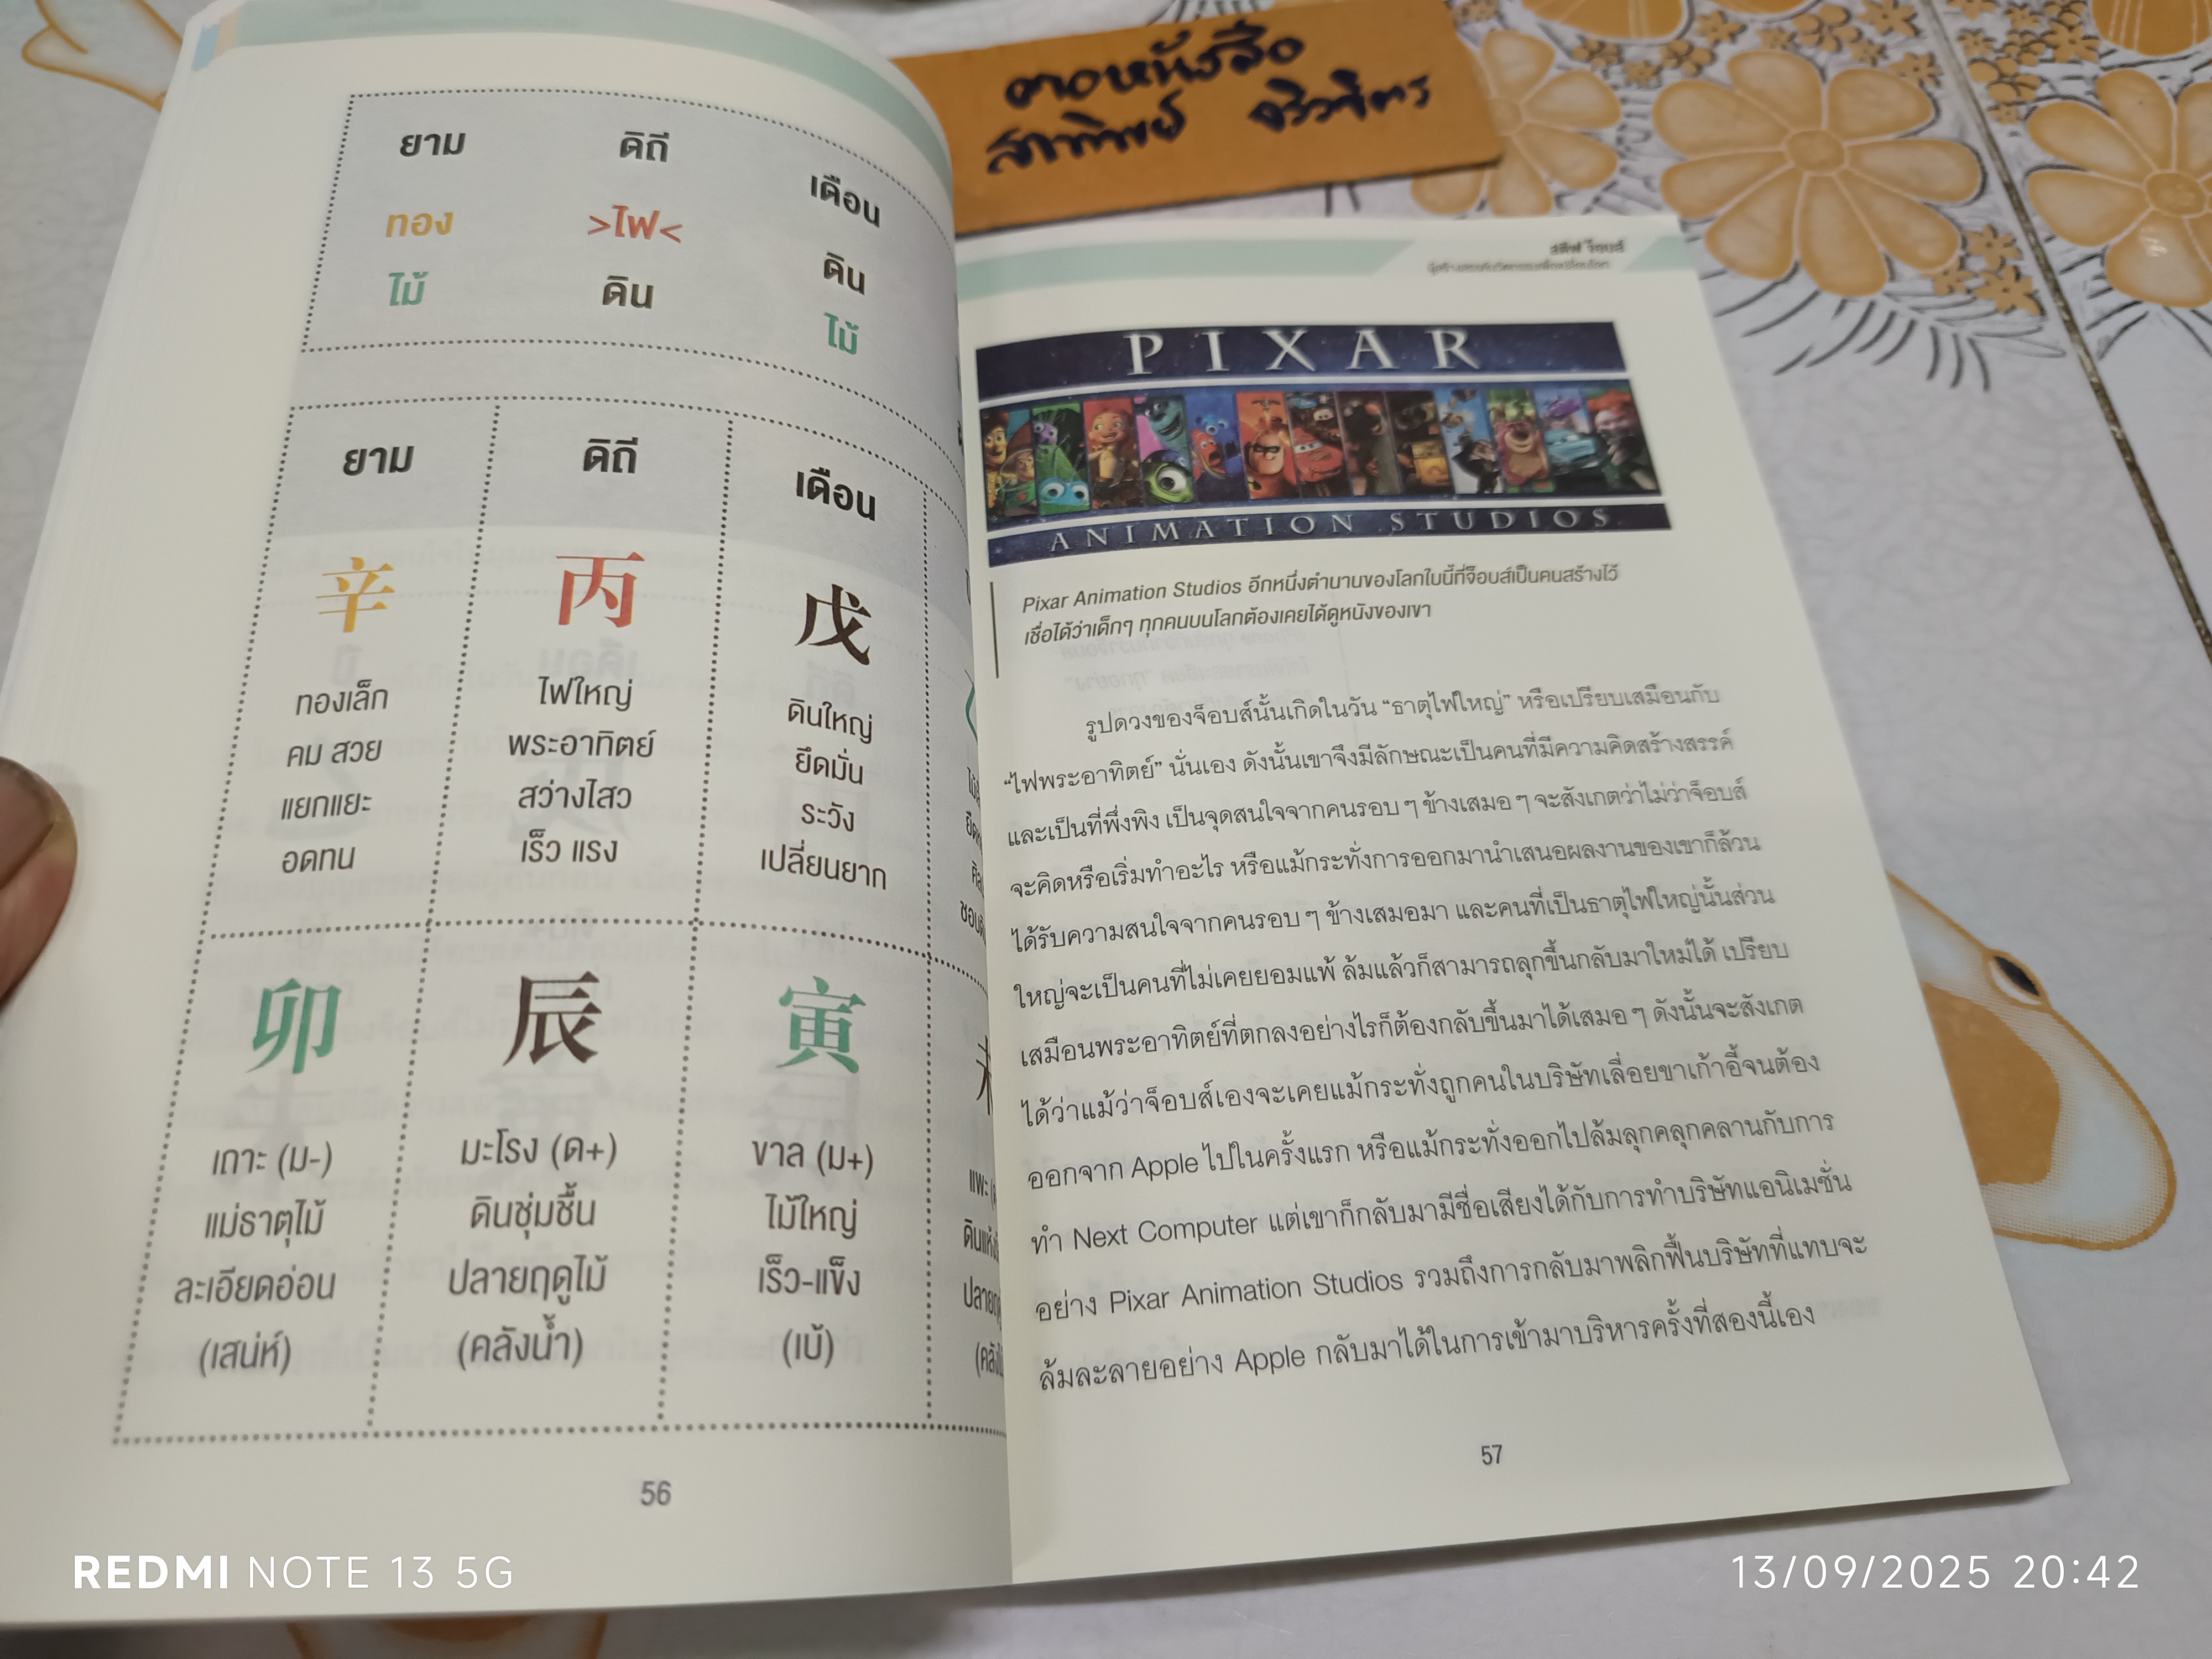 ยาม ดิถี เดือน
ทอง >ไฟ< ดิน
ไม้ ดิน ไม้
ยาม ดิถี เดือน
辛 丙 戊
ทองเล็ก ไฟใหญ่ ดินใหญ่
คม สวย พระอาทิตย์ ยึดมั่น
แยกแยะ สว่างไสว ระวัง
อดทน เร็ว แรง เปลี่ยนยาก
卯 辰 寅
เถาะ (ม-) มะโรง (ด+) ขาล (ม+)
แม่ธาตุไม้ ดินชุ่มชื้น ไม้ใหญ่
ละเอียดอ่อน ปลายฤดูไม้ เร็ว-แข็ง
(เสน่ห์) (คลังน้ำ) (เบ้)
56
สตีฟ จ็อบส์
PIXAR
ANIMATION STUDIOS
Pixar Animation Studios อีกหนึ่งตำนานของโลกใบนี้ที่จ็อบส์เป็นคนสร้างไว้
เชื่อได้ว่าเด็กๆ ทุกคนบนโลกต้องเคยได้ดูหนังของเขา
รูปดวงของจ็อบส์นั้นเกิดในวัน “ธาตุไฟใหญ่” หรือเปรียบเสมือนกับ
“ไฟพระอาทิตย์” นั่นเอง ดังนั้นเขาจึงมีลักษณะเป็นคนที่มีความคิดสร้างสรรค์
และเป็นที่พึ่งพิง เป็นจุดสนใจจากคนรอบ ๆ ข้างเสมอ ๆ จะสังเกตว่าไม่ว่าจ็อบส์
จะคิดหรือเริ่มทำอะไร หรือแม้กระทั่งการออกมานำเสนอผลงานของเขาก็ล้วน
ได้รับความสนใจจากคนรอบ ๆ ข้างเสมอมา และคนที่เป็นธาตุไฟใหญ่นั้นส่วน
ใหญ่จะเป็นคนที่ไม่เคยยอมแพ้ ล้มแล้วก็สามารถลุกขึ้นกลับมาใหม่ได้ เปรียบ
เสมือนพระอาทิตย์ที่ตกลงอย่างไรก็ต้องกลับขึ้นมาได้เสมอ ๆ ดังนั้นจะสังเกต
ได้ว่าแม้ว่าจ็อบส์เองจะเคยแม้กระทั่งถูกคนในบริษัทเลื่อยขาเก้าอี้จนต้อง
ออกจาก Apple ไปในครั้งแรก หรือแม้กระทั่งออกไปล้มลุกคลุกคลานกับการ
ทำ Next Computer แต่เขาก็กลับมามีชื่อเสียงได้กับการทำบริษัทแอนิเมชั่น
อย่าง Pixar Animation Studios รวมถึงการกลับมาพลิกฟื้นบริษัทที่แทบจะ
ล้มละลายอย่าง Apple กลับมาได้ในการเข้ามาบริหารครั้งที่สองนี้เอง
57
REDMI NOTE 13 5G
13/09/2025 20:42